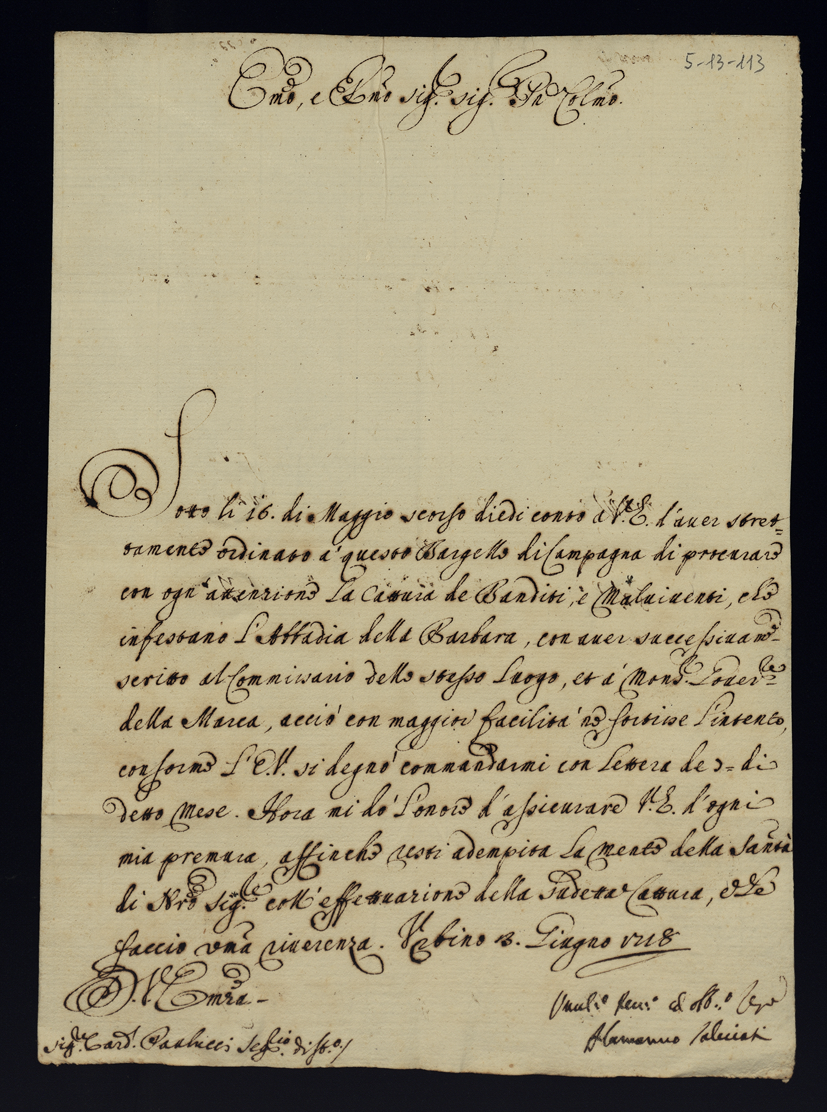 5-13-113
Emo, e Rmo sig.r sig.r Pne Colmo.
Sotto li 16. di Maggio scorso diedi conto à V.E. d'aver stret=
tamente ordinato a' questo Bargello di Campagna di procurare
con ogn'attenzione La Cattura de Banditi, e Malviventi, che
infestano L'Abbadia della Barbara, con aver successivam.te
scritto al Commissario dello stesso Luogo, et a' Mons.r Gover.re
della Marca, acciò con maggior facilita' ne sortisse l'intento,
conforme L'E.V. si degno' commandarmi con Lettera de di
detto Mese. Hora mi do' L'onore d'assicurare V.E. d'ogni
mia premura, affinche resti adempita La mente della Santà
di Nro Sig.re coll'effettuazione della Sudetta Cattura, e Le
faccio um.a riverenza. Urbino Giugno 1718
D. V. Emza
Umil.o Dev.o ed obb.o Ser.e
Alamanno Salviati
Sig.r Card. Paulucci Seg.rio di Sto.